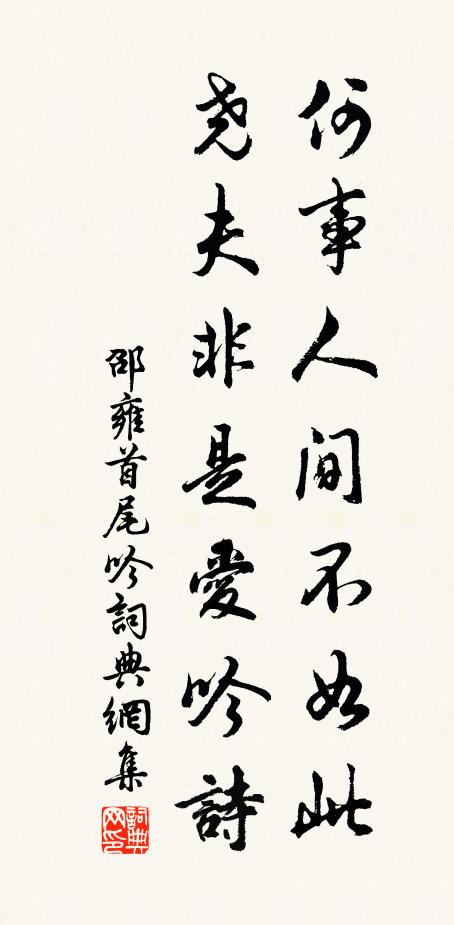 何事人间不如此
尧夫非是愛吟詩
邵雍首尾吟詞典網集
詞典网印